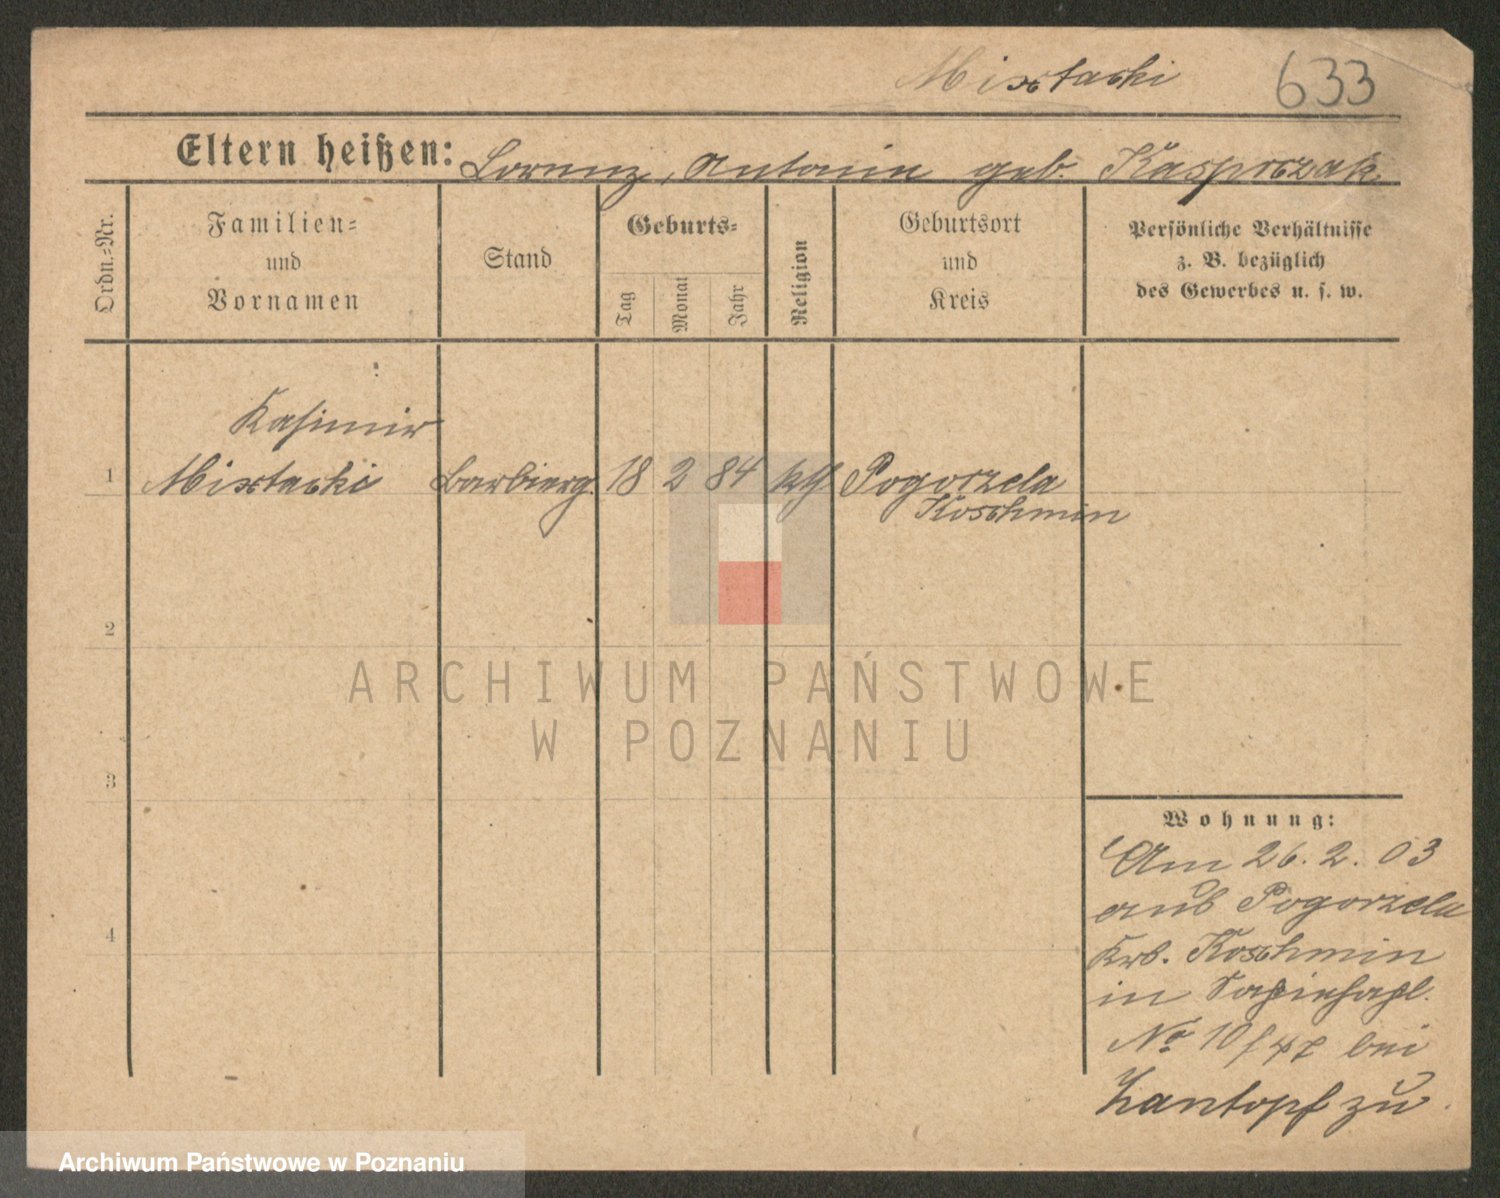 Mixtacki 633
Eltern heißen: Lorenz, Antonin geb. Kasprczak
Ordn.=Nr.
Familien=
und
Vornamen
Stand
Geburts=
Tag
Monat
Jahr
Religion
Geburtsort
und
Kreis
Persönliche Verhältnisse
z. B. bezüglich
des Gewerbes u. s. w.
Kasimir
1 Mixtacki Barbierg. 18 2 84 kth Pogorzela
Koschmin
2
3
4
Wohnung:
Am 26. 2. 03
aus Pogorzela
Krs. Koschmin
in Sapiehapl.
No 10/ bei
Zantopf zu
ARCHIWUM PAŃSTWOWE
W POZNANIU
Archiwum Państwowe w Poznaniu